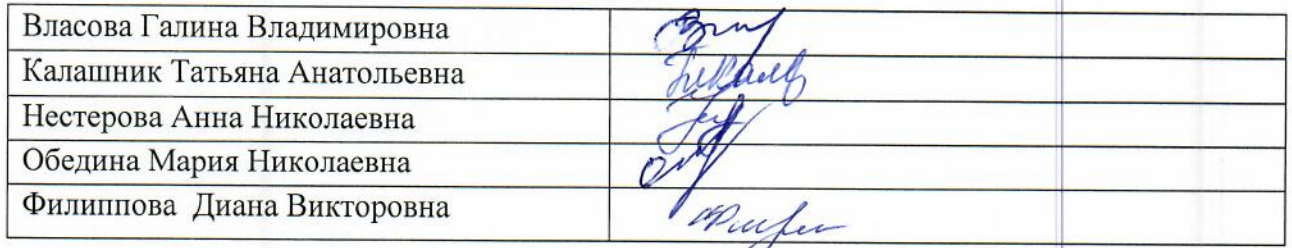 Власова Галина Владимировна
Калашник Татьяна Анатольевна
Нестерова Анна Николаевна
Обедина Мария Николаевна
Филиппова Диана Викторовна